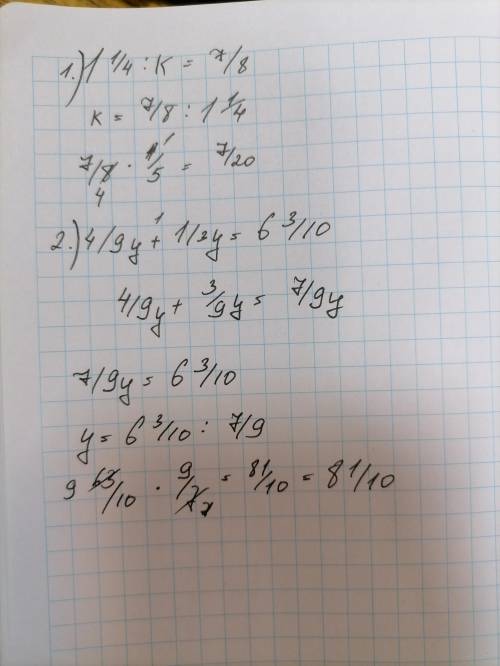 1.) 1 1/4 : K = 7/8
K = 7/8 : 1 1/4
7/8 4 · 1/5 = 7/20
2.) 4/9y + 1/3y = 6 3/10
4/9y + 3/9y = 7/9y
7/9y = 6 3/10
y = 6 3/10 : 7/9
9 63/10 · 9/7 = 81/10 = 8 1/10